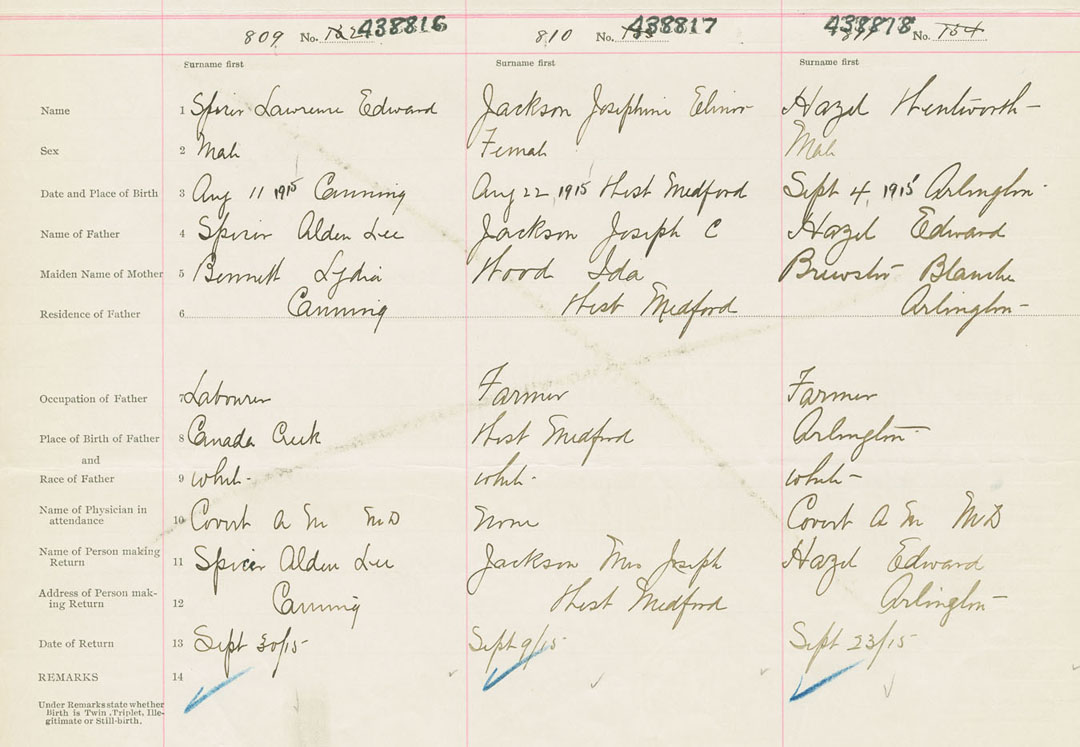 809 No. 438816 810 No. 438817 438818 No. 154
Surname first Surname first Surname first
Name 1 Spicer Lawrence Edward Jackson Josephine Elinor Hazel Wentworth
Sex 2 Male Female Male
Date and Place of Birth 3 Aug 11 1915 Canning Aug 22, 1915 West Medford Sept 4, 1915 Arlington
Name of Father 4 Spicer Alden Lee Jackson Joseph C Hazel Edward
Maiden Name of Mother 5 Bennett Lydia Wood Ida Brewster Blanche
Residence of Father 6 Canning West Medford Arlington
Occupation of Father 7 Labourer Farmer Farmer
Place of Birth of Father 8 Canada Creek West Medford Arlington
and
Race of Father 9 White White White
Name of Physician in
attendance 10 Covert A M MD None Covert A M MD
Name of Person making
Return 11 Spicer Alden Lee Jackson Mrs Joseph Hazel Edward
Address of Person mak-
ing Return 12 Canning West Medford Arlington
Date of Return 13 Sept 30/15 Sept 9/15 Sept 23/15
REMARKS 14
Under Remarks state whether
Birth is Twin, Triplet, Ille-
gitimate or Still-birth.